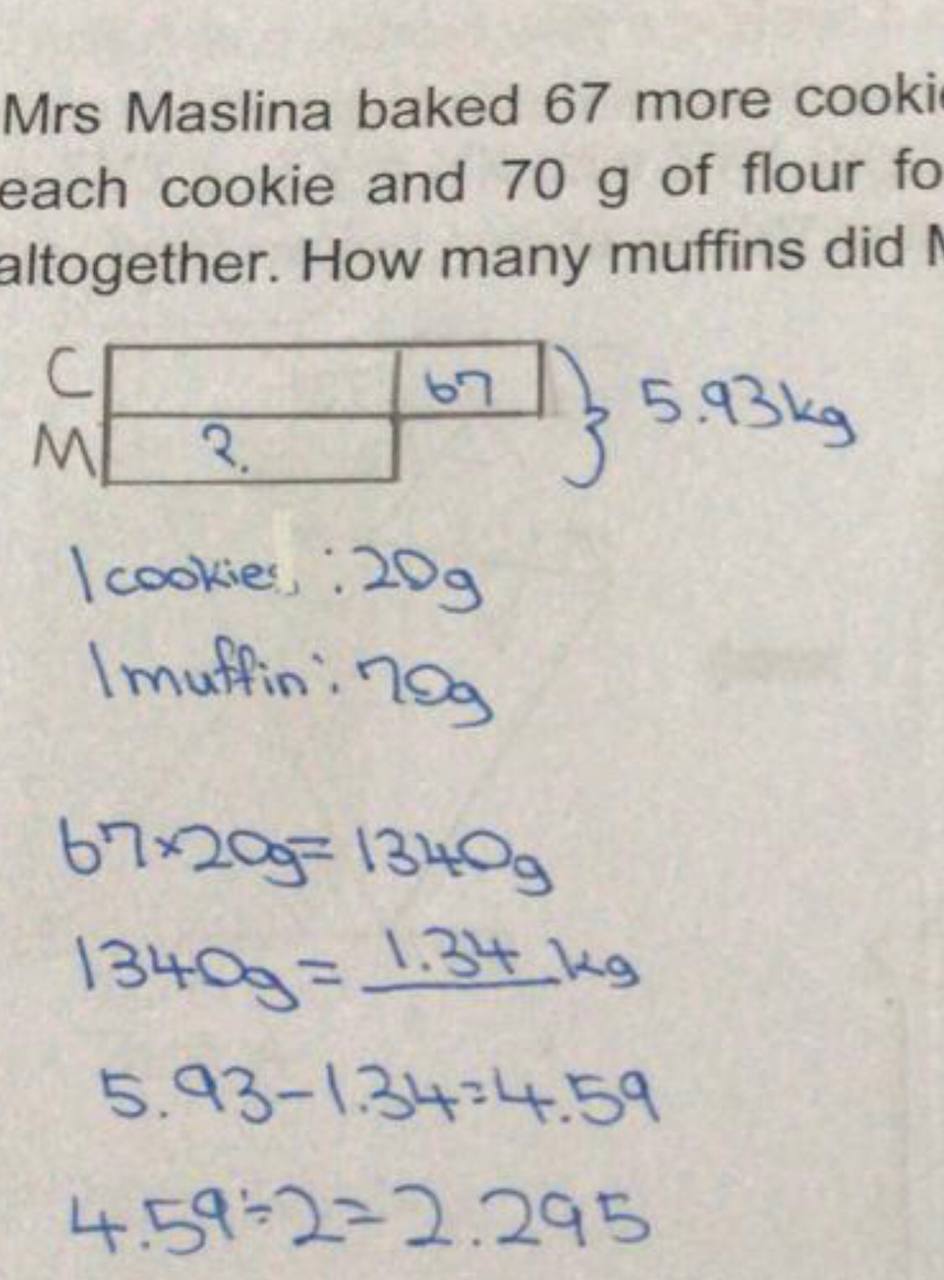 Mrs Maslina baked 67 more cookie
each cookie and 70 g of flour fo
altogether. How many muffins did M
C 67 5.93kg
M ?
1 cookie : 20g
1 muffin : 70g
67×20g= 1340g
1340g = 1.34 kg
5.93-1.34=4.59
4.59÷2=2.295